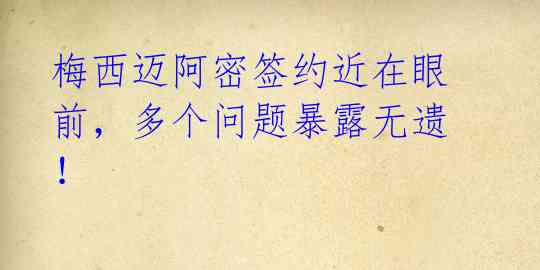 梅西迈阿密签约近在眼
前，多个问题暴露无遗
！